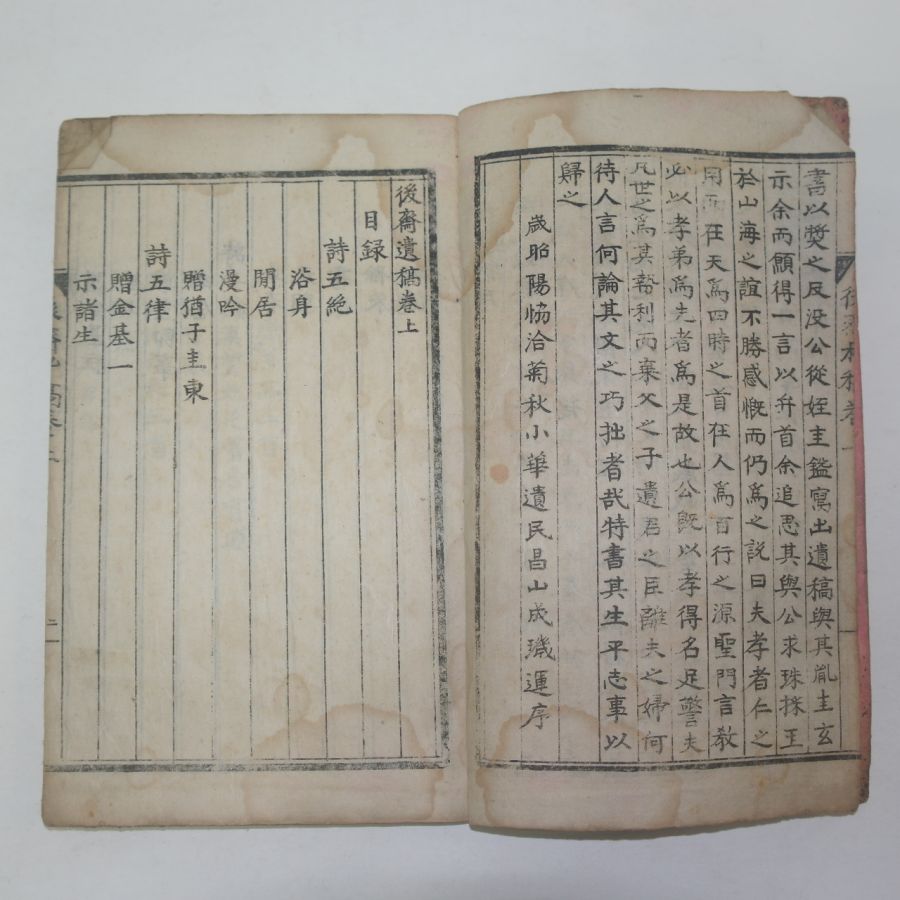 書以奬之及没公從姪圭鑑寫出遺稿與其胤圭玄
示余而願得一言以弁首余追思其與公求珠採玉
於山海之誼不勝感慨而仍爲之説曰夫孝者仁之
用而在天爲四時之首在人爲百行之源聖門言教
必以孝弟爲先者爲是故也公既以孝得名足警夫
凡世之爲其勢利而棄父之子遺君之臣離夫之婦何
待人言何論其文之巧拙者哉特書其生平志事以
歸之
歲昭陽協洽菊秋小華遺民昌山成璣運序
後齋遺稿卷上
目録
詩五絶
浴身
閒居
漫吟
贈猶子圭東
詩五律
贈金基一
示諸生